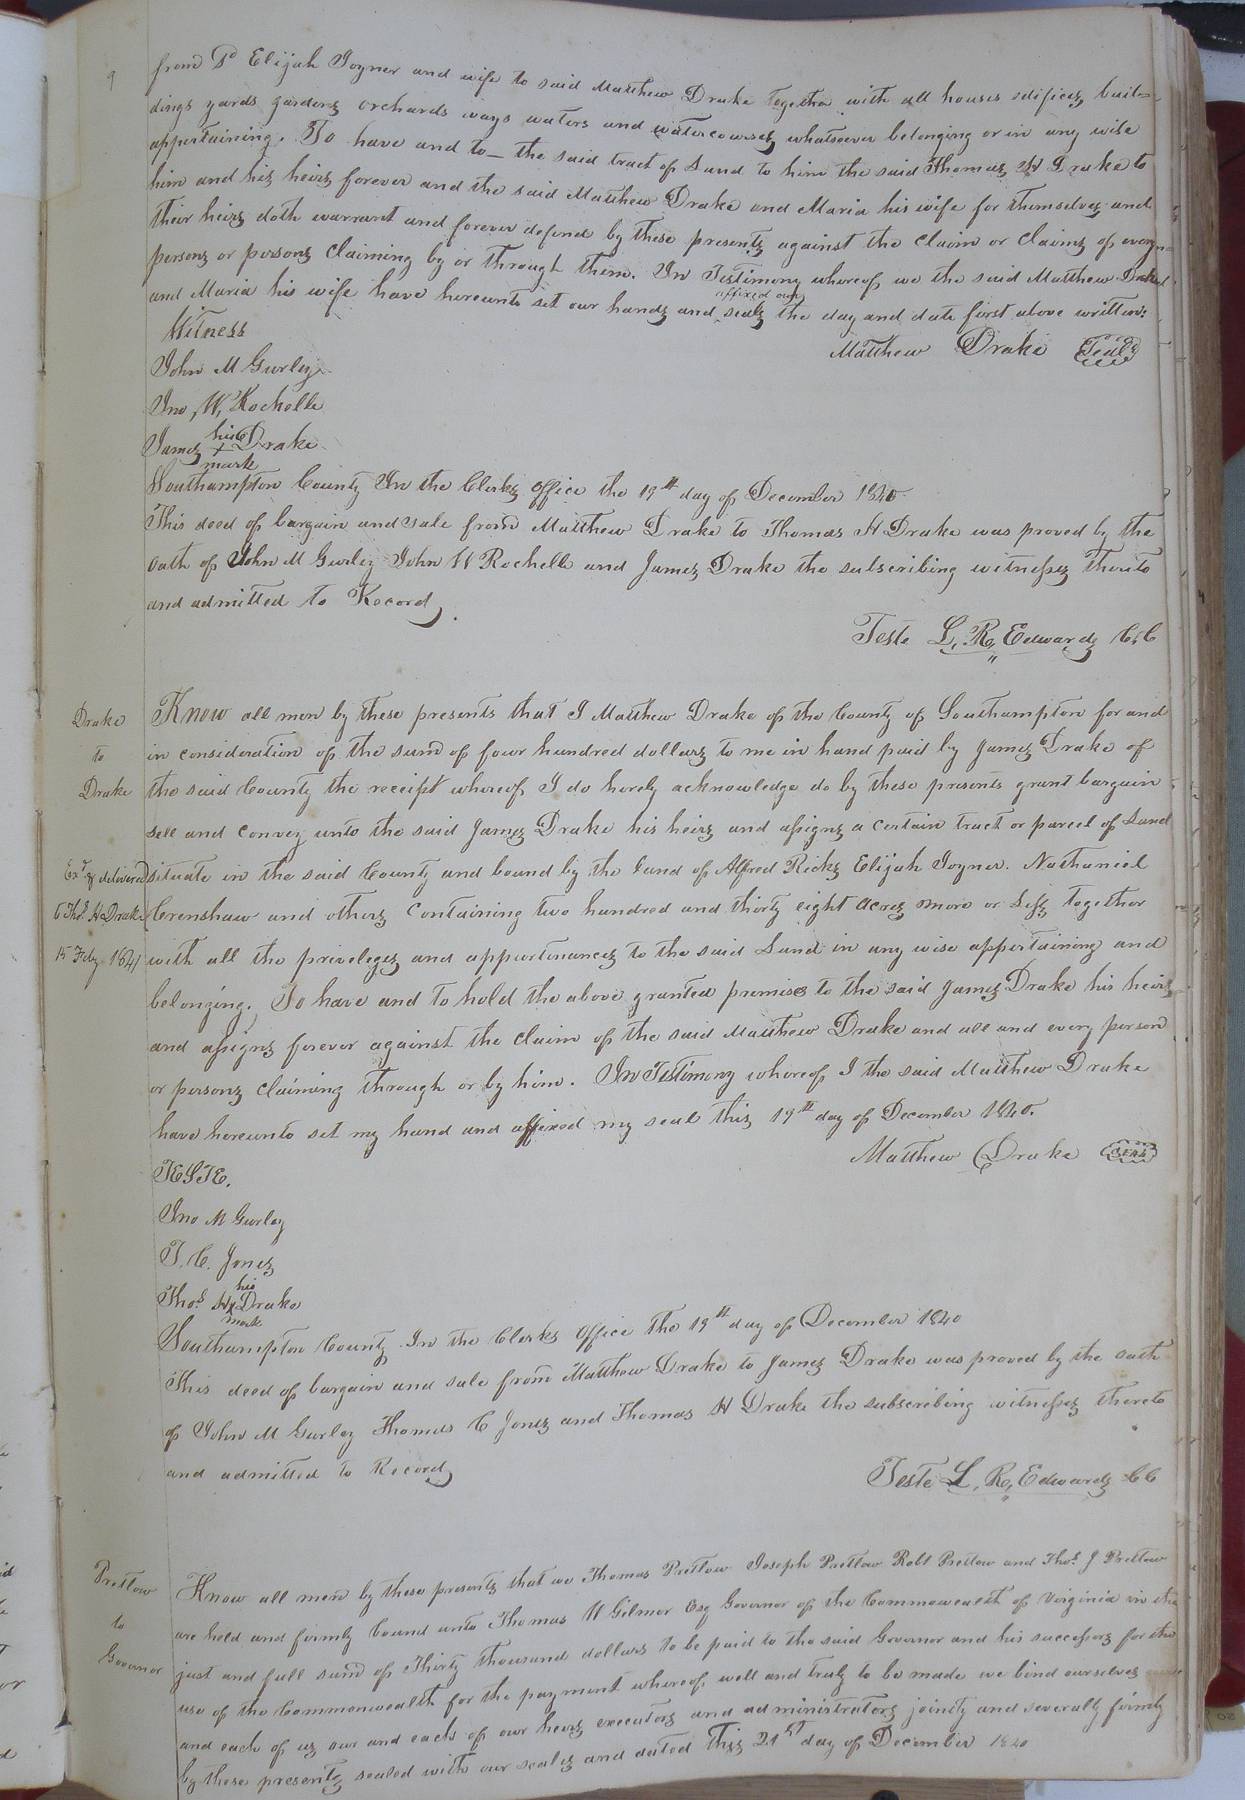 9
from Sd Elijah Joyner and wife to said Matthew Drake together with all houses edifices, buil-
dings yards gardens orchards ways waters and watercourses whatsoever belonging or in any wise
appertaining. To have and to - the said tract of Land to him the said Thomas H Drake to
him and his heirs forever and the said Matthew Drake and Maria his wife for themselves and
their heirs doth warrant and forever defend by these presents against the claim or claims of every
persons or persons claiming by or through them. In Testimony whereof we the said Matthew Drake
and Maria his wife have hereunto set our hands and affixed our seals the day and date first above written.
Witness
Matthew Drake Seal
John M Gurley
Jno, W, Rochelle
James his Drake
mark
Southampton County In the Clerks Office the 19th day of December 1840
This deed of bargain and sale from Matthew Drake to Thomas H Drake was proved by the
oath of John M Gurley John W Rochelle and James Drake the subscribing witnesses thereto
and admitted to Record,
Teste L, R, Edwards C,C
Drake
to
Drake
Exd & delivered
to Thos. H Drake
15 Feby 1841
Know all men by these presents that I Matthew Drake of the County of Southampton for and
in consideration of the sum of four hundred dollars to me in hand paid by James Drake of
the said County the receipt whereof I do hereby acknowledge do by these presents grant bargain
sell and convey unto the said James Drake his heirs and assigns a certain tract or parcel of Land
situate in the said County and bound by the land of Alfred Ricks Elijah Joyner. Nathaniel
Crenshaw and others containing two hundred and thirty eight acres more or less together
with all the priveleges and appurtenances to the said Land in any wise appertaining and
belonging. To have and to hold the above granted premises to the said James Drake his heirs
and assigns forever against the claim of the said Matthew Drake and all and every person
or persons claiming through or by him. In Testimony whereof I the said Matthew Drake
have hereunto set my hand and affixed my seal this 19th day of December 1840.
Matthew Drake SEAL
TESTE.
Jno M Gurley
T. C. Jones
Thos. H his x Drake
mark
Southampton County. In the Clerks Office the 19th day of December 1840
This deed of bargain and sale from Matthew Drake to James Drake was proved by the oath
of John M Gurley Thomas C Jones and Thomas H Drake the subscribing witnesses thereto
and admitted to Record
Teste L, R, Edwards CC
Pretlow
to
Governor
Know all men by these presents that we Thomas Pretlow Joseph Pretlow Robt Pretlow and Thos. J Pretlow
are held and firmly bound unto Thomas W Gilmer Esq Governor of the Commonwealth of Virginia in the
just and full sum of Thirty thousand dollars to be paid to the said Governor and his successors for the
use of the Commonwealth for the payment whereof, well and truly to be made we bind ourselves
and each of us our and each of our heirs executors and administrators jointly and severally firmly
by these presents sealed with our seals and dated this 21st day of December 1840